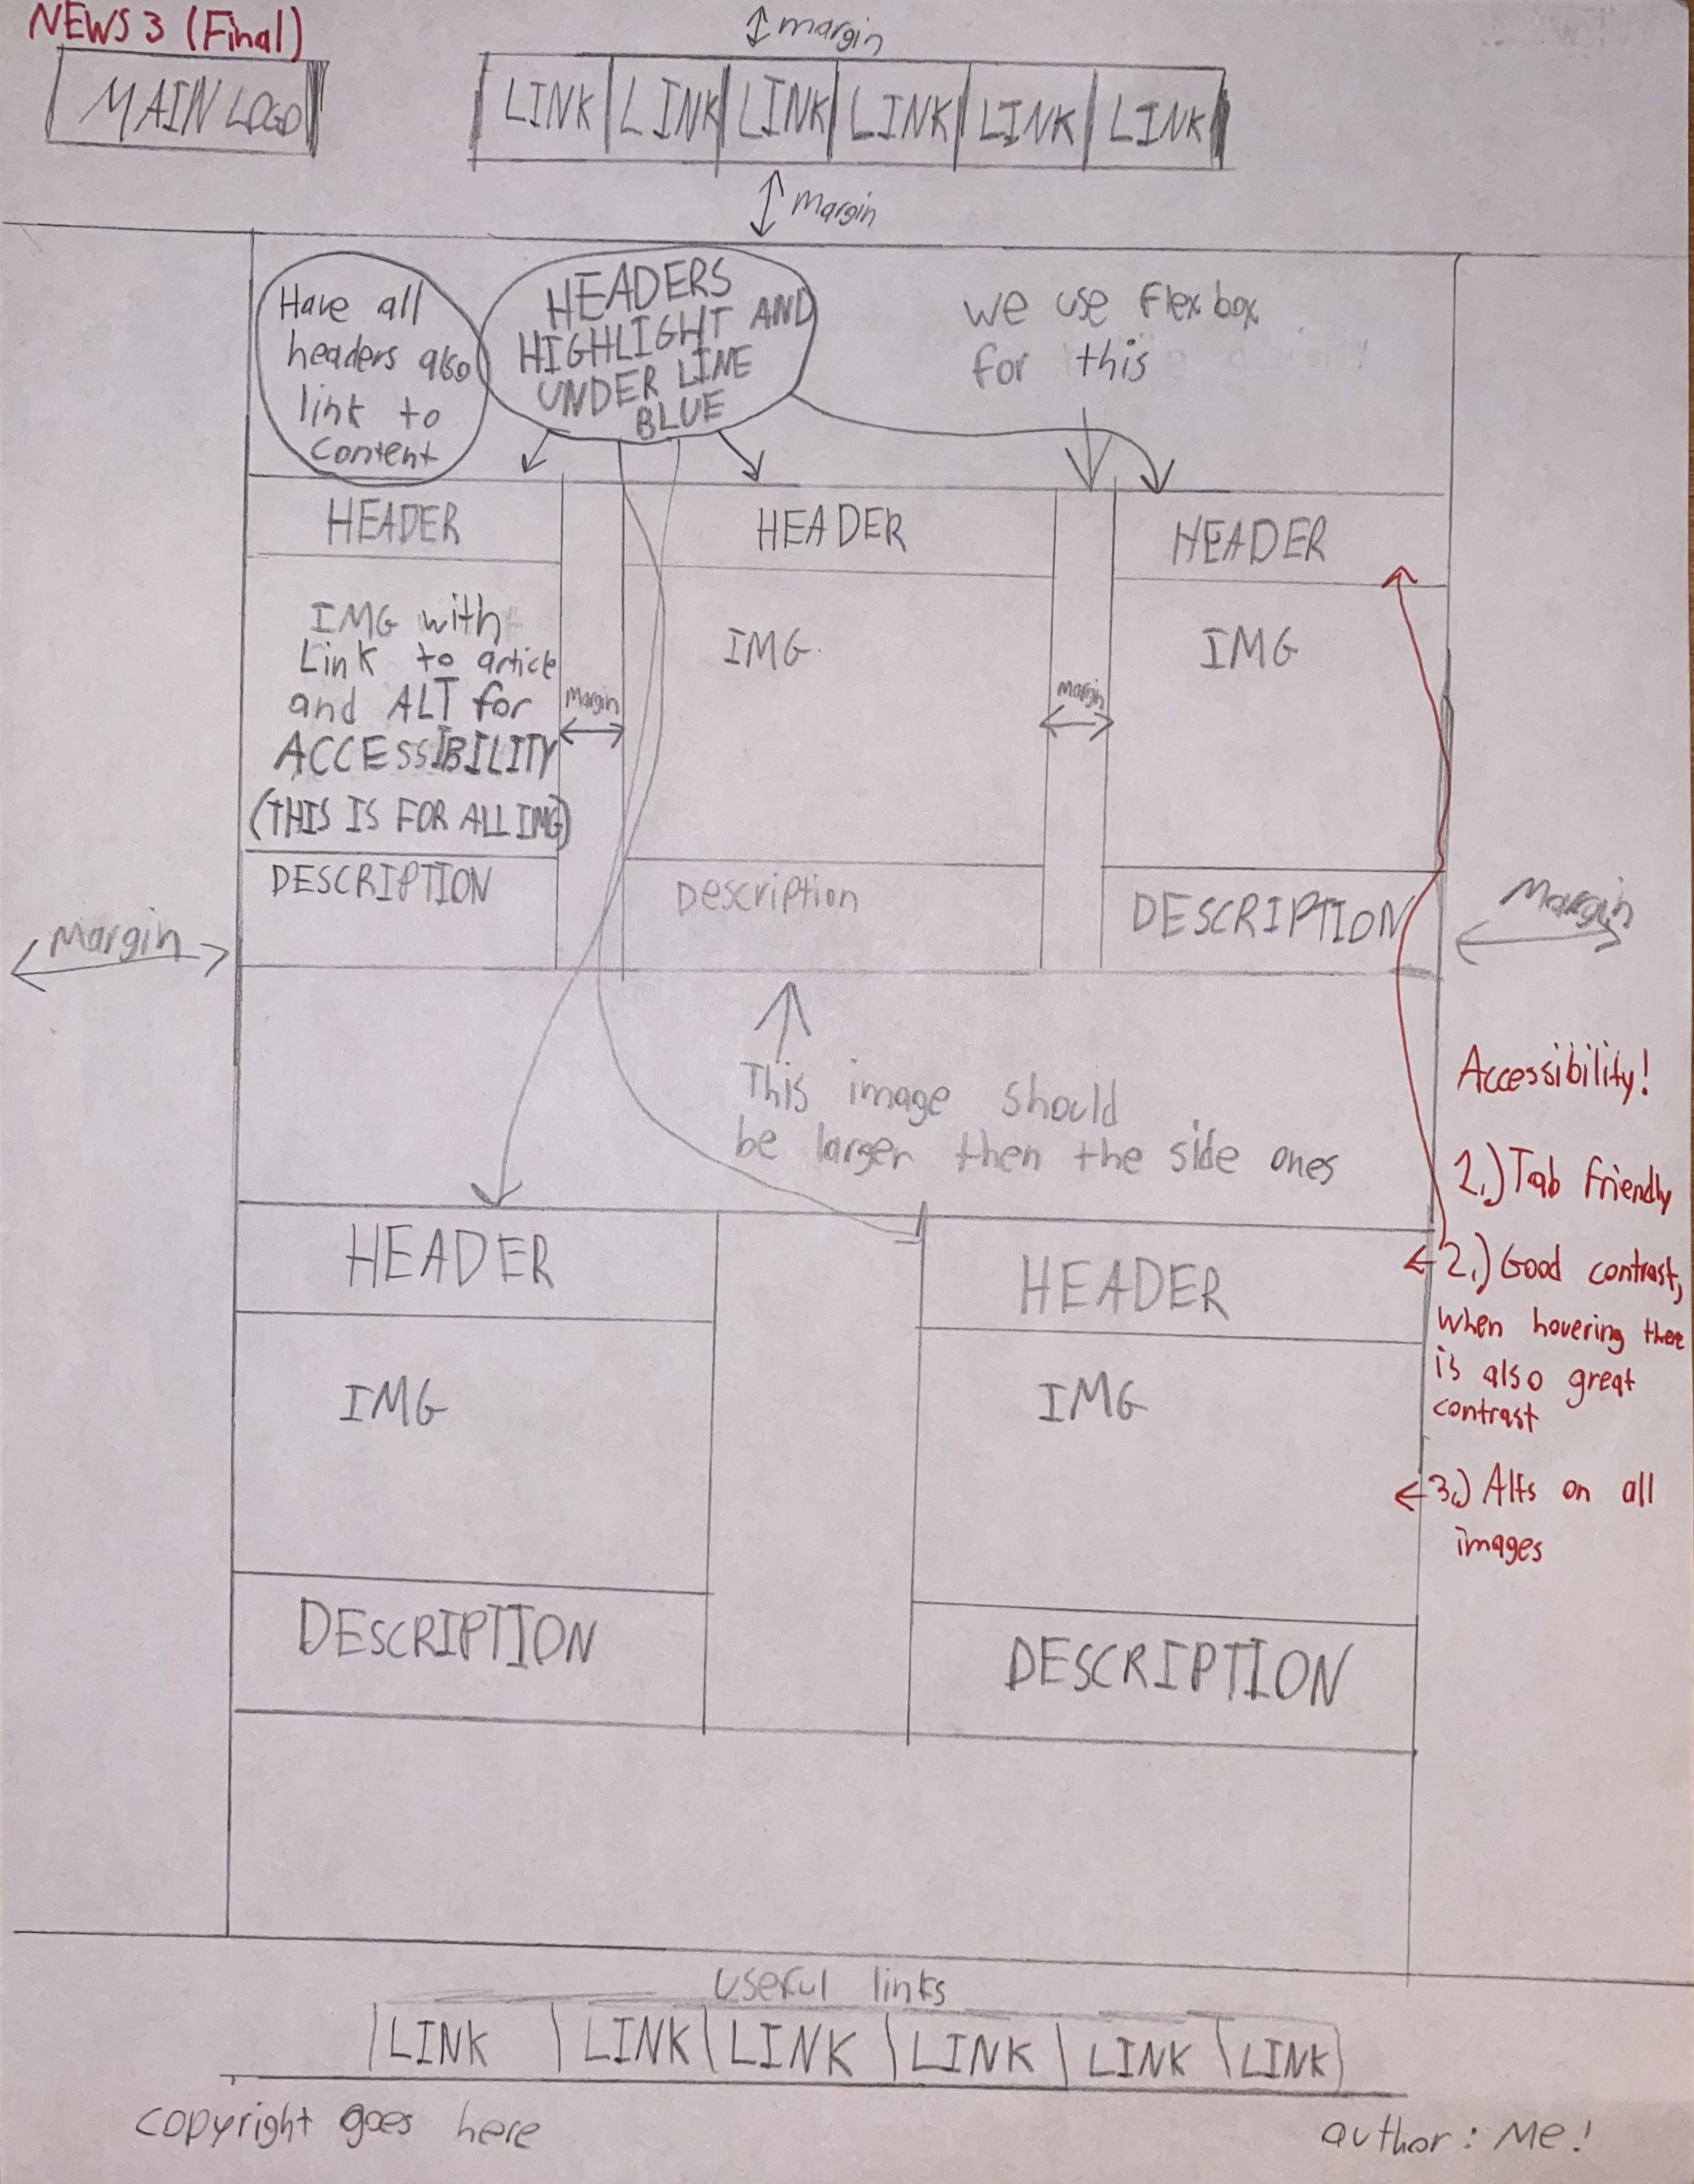 NEWS 3 (Final)
MAIN LOGO
margin
LINK LINK LINK LINK LINK LINK
Margin
Have all
headers also
link to
Content
HEADERS
HIGHLIGHT AND
UNDER LINE
BLUE
we use flex box
for this
HEADER
HEADER
HEADER
IMG with
Link to article
and ALT for
ACCESSIBILITY
(THIS IS FOR ALL IMG)
Margin
IMG
Margin
IMG
DESCRIPTION
Description
DESCRIPTION
Margin
Margin
This image should
be larger then the side ones
Accessibility!
1.) Tab friendly
2.) Good contrast,
when hovering there
is also great
contrast
3.) Alts on all
images
HEADER
HEADER
IMG
IMG
DESCRIPTION
DESCRIPTION
useful links
LINK LINK LINK LINK LINK LINK
copyright goes here
author: Me!